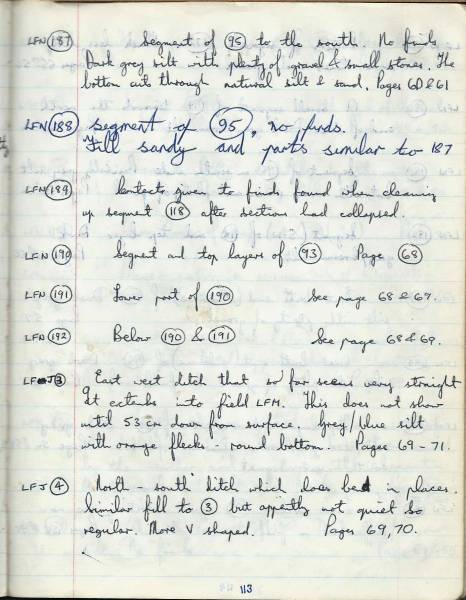 LFN (187) Segment of (95) to the south. No finds
Dark grey silt with plenty of gravel & small stones. The
bottom cuts through natural silt & sand. Pages 60 & 61
LFN (188) Segment of (95), no finds.
Fill sandy and parts similar to 187
LFN (189) Contexts given to finds found when cleaning
up segment (118) after sections had collapsed.
LFN (190) Segment and top layers of (93) Page (68)
LFN (191) Lower part of (190) See page 68 & 69.
LFN (192) Below (190) & (191) See page 68 & 69.
LFJ (3) East west ditch that so far seems very straight
It extends into field LFM. This does not show
until 53 cm down from surface. Grey/blue silt
with orange flecks - round bottom. Pages 69 - 71.
LFJ (4) North - south ditch which does bend in places.
Similar fill to (3) but appently not quiet so
regular. More V shaped. Pages 69, 70.
113